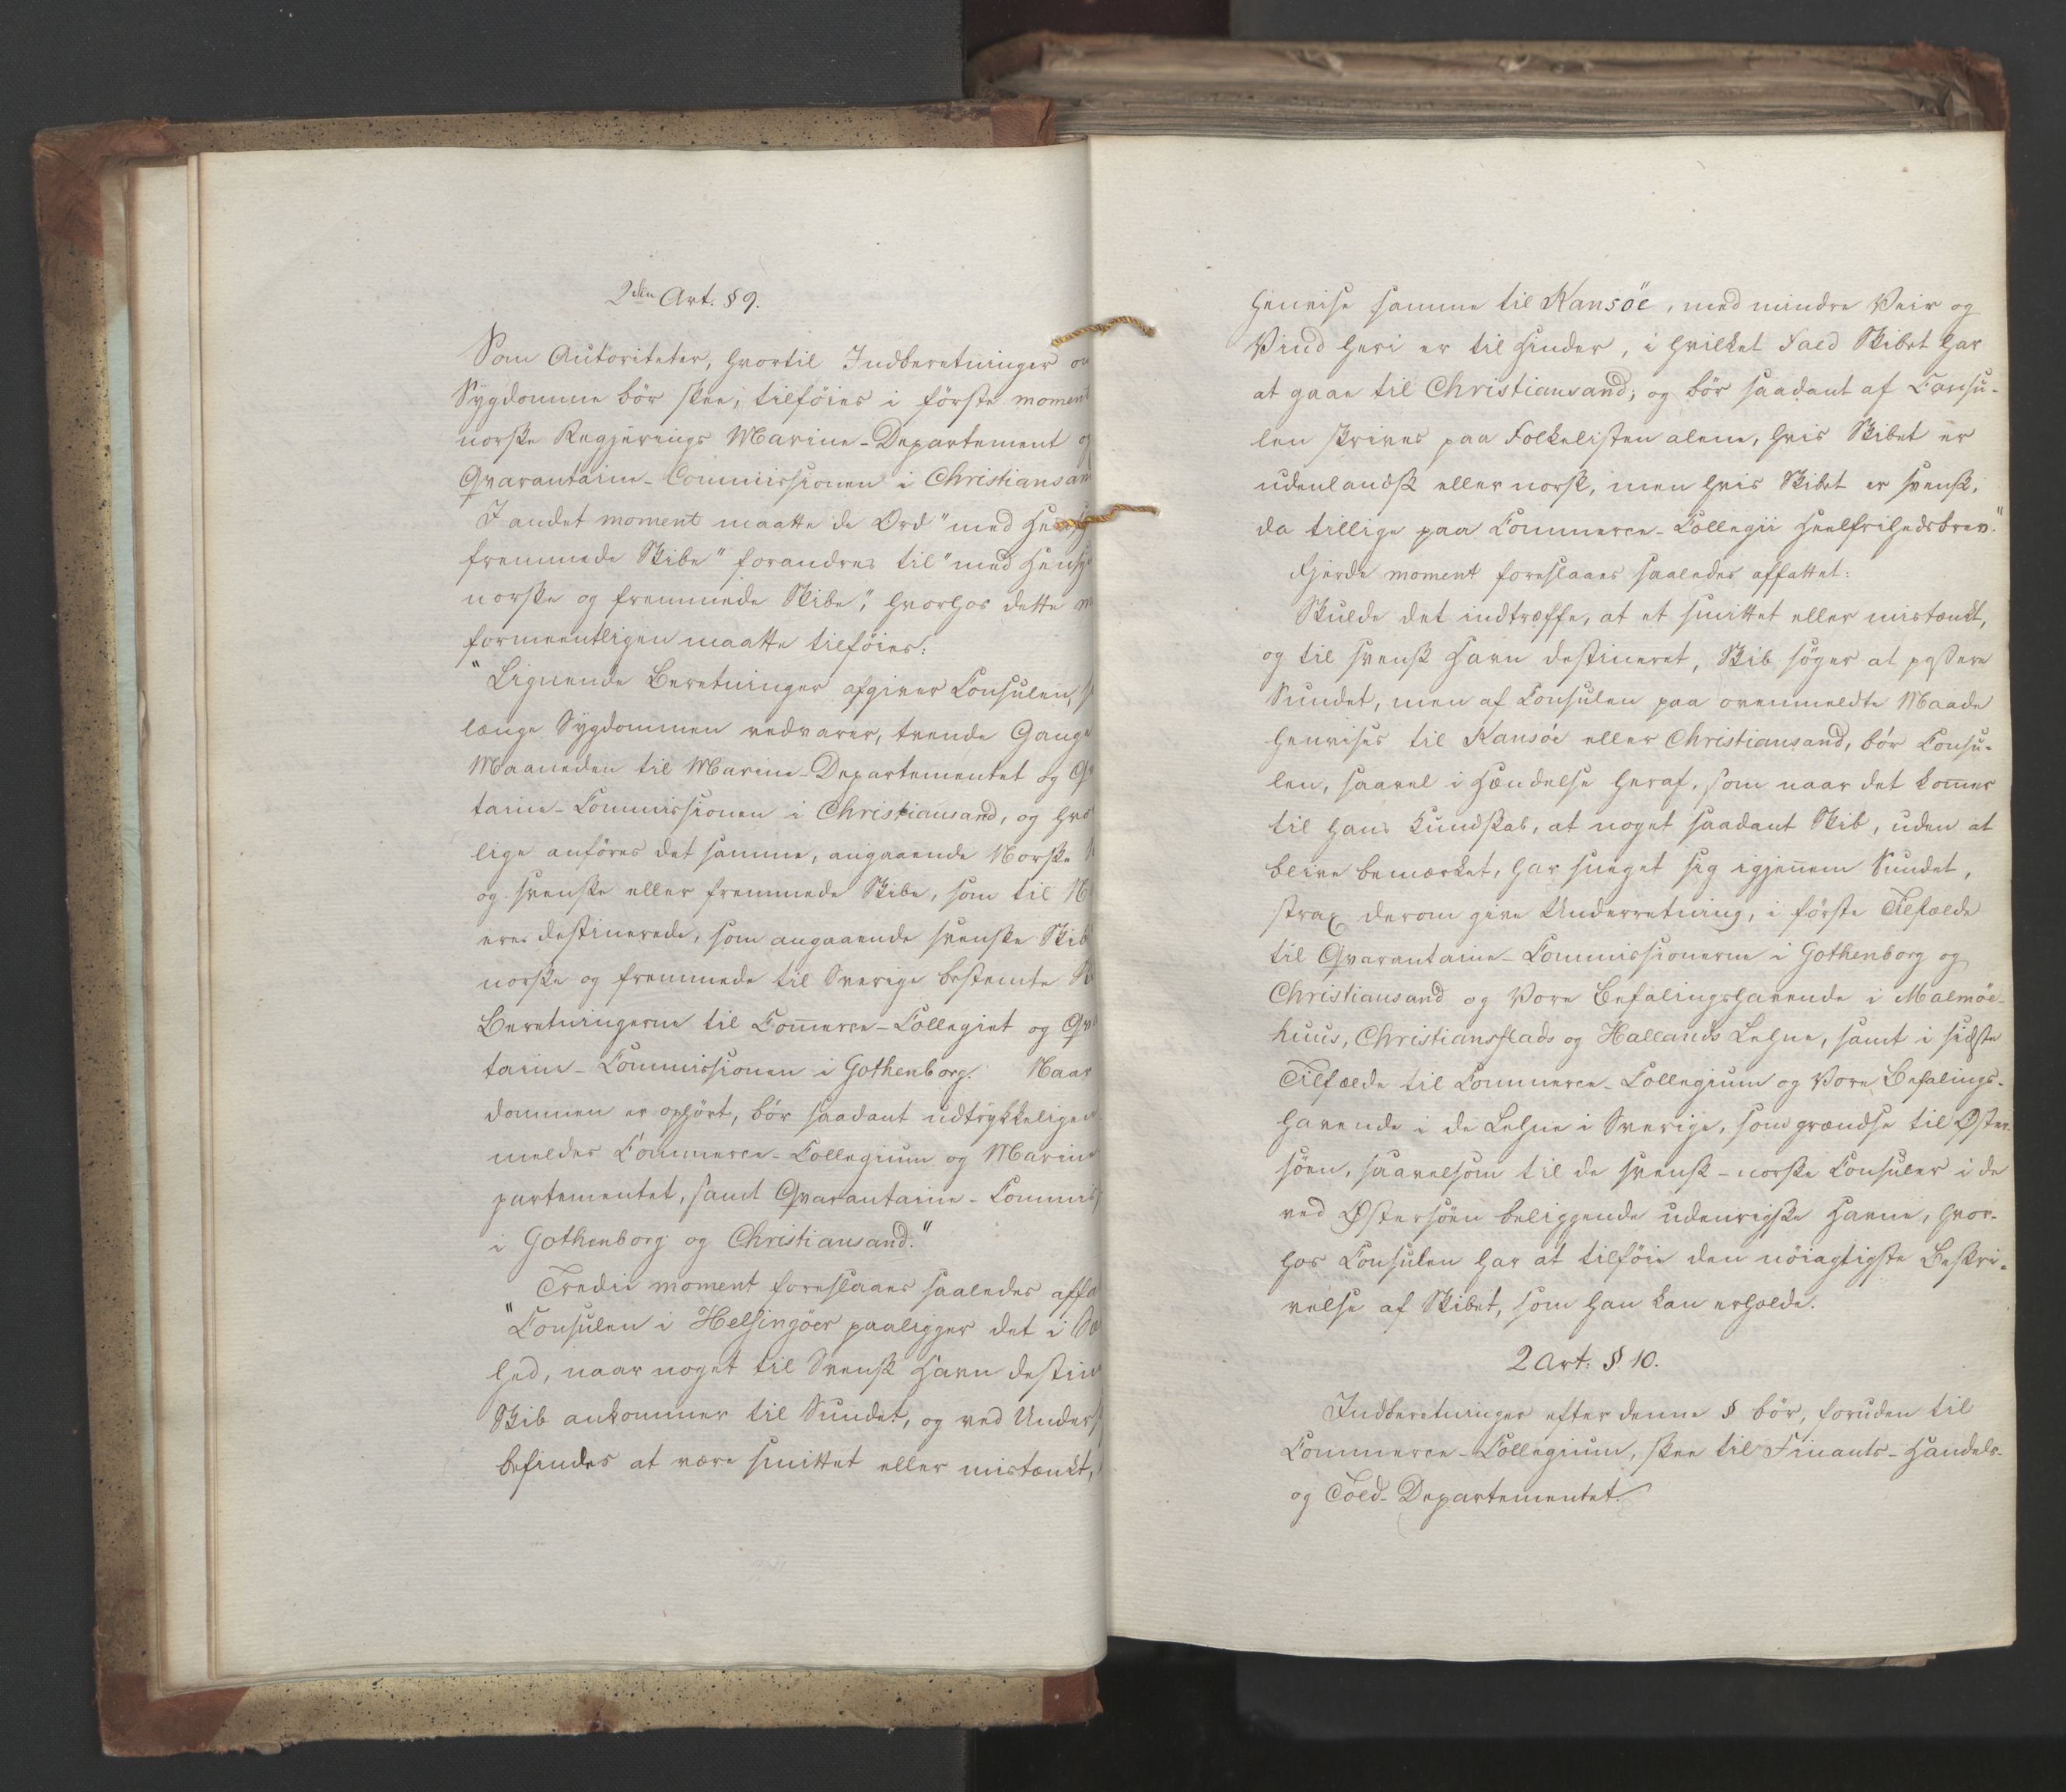 2den Art. § 9.
Som Autoriteter, hvortil Indberetninger om
Sygdomme bör skee, tilföies i förste moment
norske Regjerings Marine-Departement og
Qvarantaine-Commissionen i Christiansand
I andet moment maatte de Ord "med Hensyn
fremmede Skibe" forandres til "med Hensyn
norske og fremmede Skibe", hvorhos dette m
formeentligen maatte tilföies:
"Lignende Beretninger afgiver Consulen, s
længe Sygdommen vedvarer, trende Gange
Maaneden til Marine-Departementet og Qv
taine-Commissionen i Christiansand, og hvo
lige anföres det samme, angaaende Norske
og svenske eller fremmede Skibe, som til N
ere destinerede, som angaaende svenske Skib
norske og fremmede til Sverige bestemte Sk
Beretningerne til Com̄erce-Collegiet og Qva
taine-Commissionen i Gothenborg. Naar
dommen er ophört, bör saadant udtrykkeligen
meldes Commerce-Collegium og Marine
partementet, samt Qvarantaine-Commis
i Gothenborg og Christiansand."
Tredie moment foreslaaes saaledes affa
"Consulen i Helsingöer paaligger det i Sæ
hed, naar noget til Svensk Havn destin
Skib ankommer til Sundet, og ved Unders
befindes at være smittet eller mistænkt,
henvise samme til Kansöe, med mindre Veir og
Vind heri er til Hinder, i hvilket Fald Skibet har
at gaae til Christiansand; og bör saadant af Consu-
len skrives paa Folkelisten alene, hvis Skibet er
udenlandsk eller norsk, men hvis Skibet er svensk,
da tillige paa Commerce-Collegii Heelfrihedsbrev."
Fjerde moment foreslaaes saaledes affattet:
Skulde det indtræffe, at et smittet eller mistænkt,
og til svensk Havn destineret, Skib söger at passere
Sundet, men af Consulen paa ovenmeldte Maade
henvises til Kansöe eller Christiansand, bör Consu-
len, saavel i Hændelse heraf, som naar det kom̄er
til hans Kundskab, at noget saadant Skib, uden at
blive bemærket, har sneget sig igjen̄em Sundet,
strax derom give Underretning, i förste Tilfælde
til Qvarantaine-Commissionerne i Gothenborg og
Christiansand og Vore Befalingshavende i Malmöe-
huus, Christiansstads og Hallands Lehne, samt i sidste
Tilfælde til Commerce-Collegium og Vore Befalings-
havende i de Lehne i Sverige, som grændse til Öster-
söen, saavelsom til de svensk-norske Consuler i de
ved Östersöen beliggende udenrigske Havne, hvor-
hos Consulen har at tilföie den nöiagtigste Beskri-
velse af Skibet, som han kan erholde.
2 Art. § 10.
Indberetninger efter denne § bör, foruden til
Commerce-Collegium, skee til Finants-Handels-
og Told-Departementet.